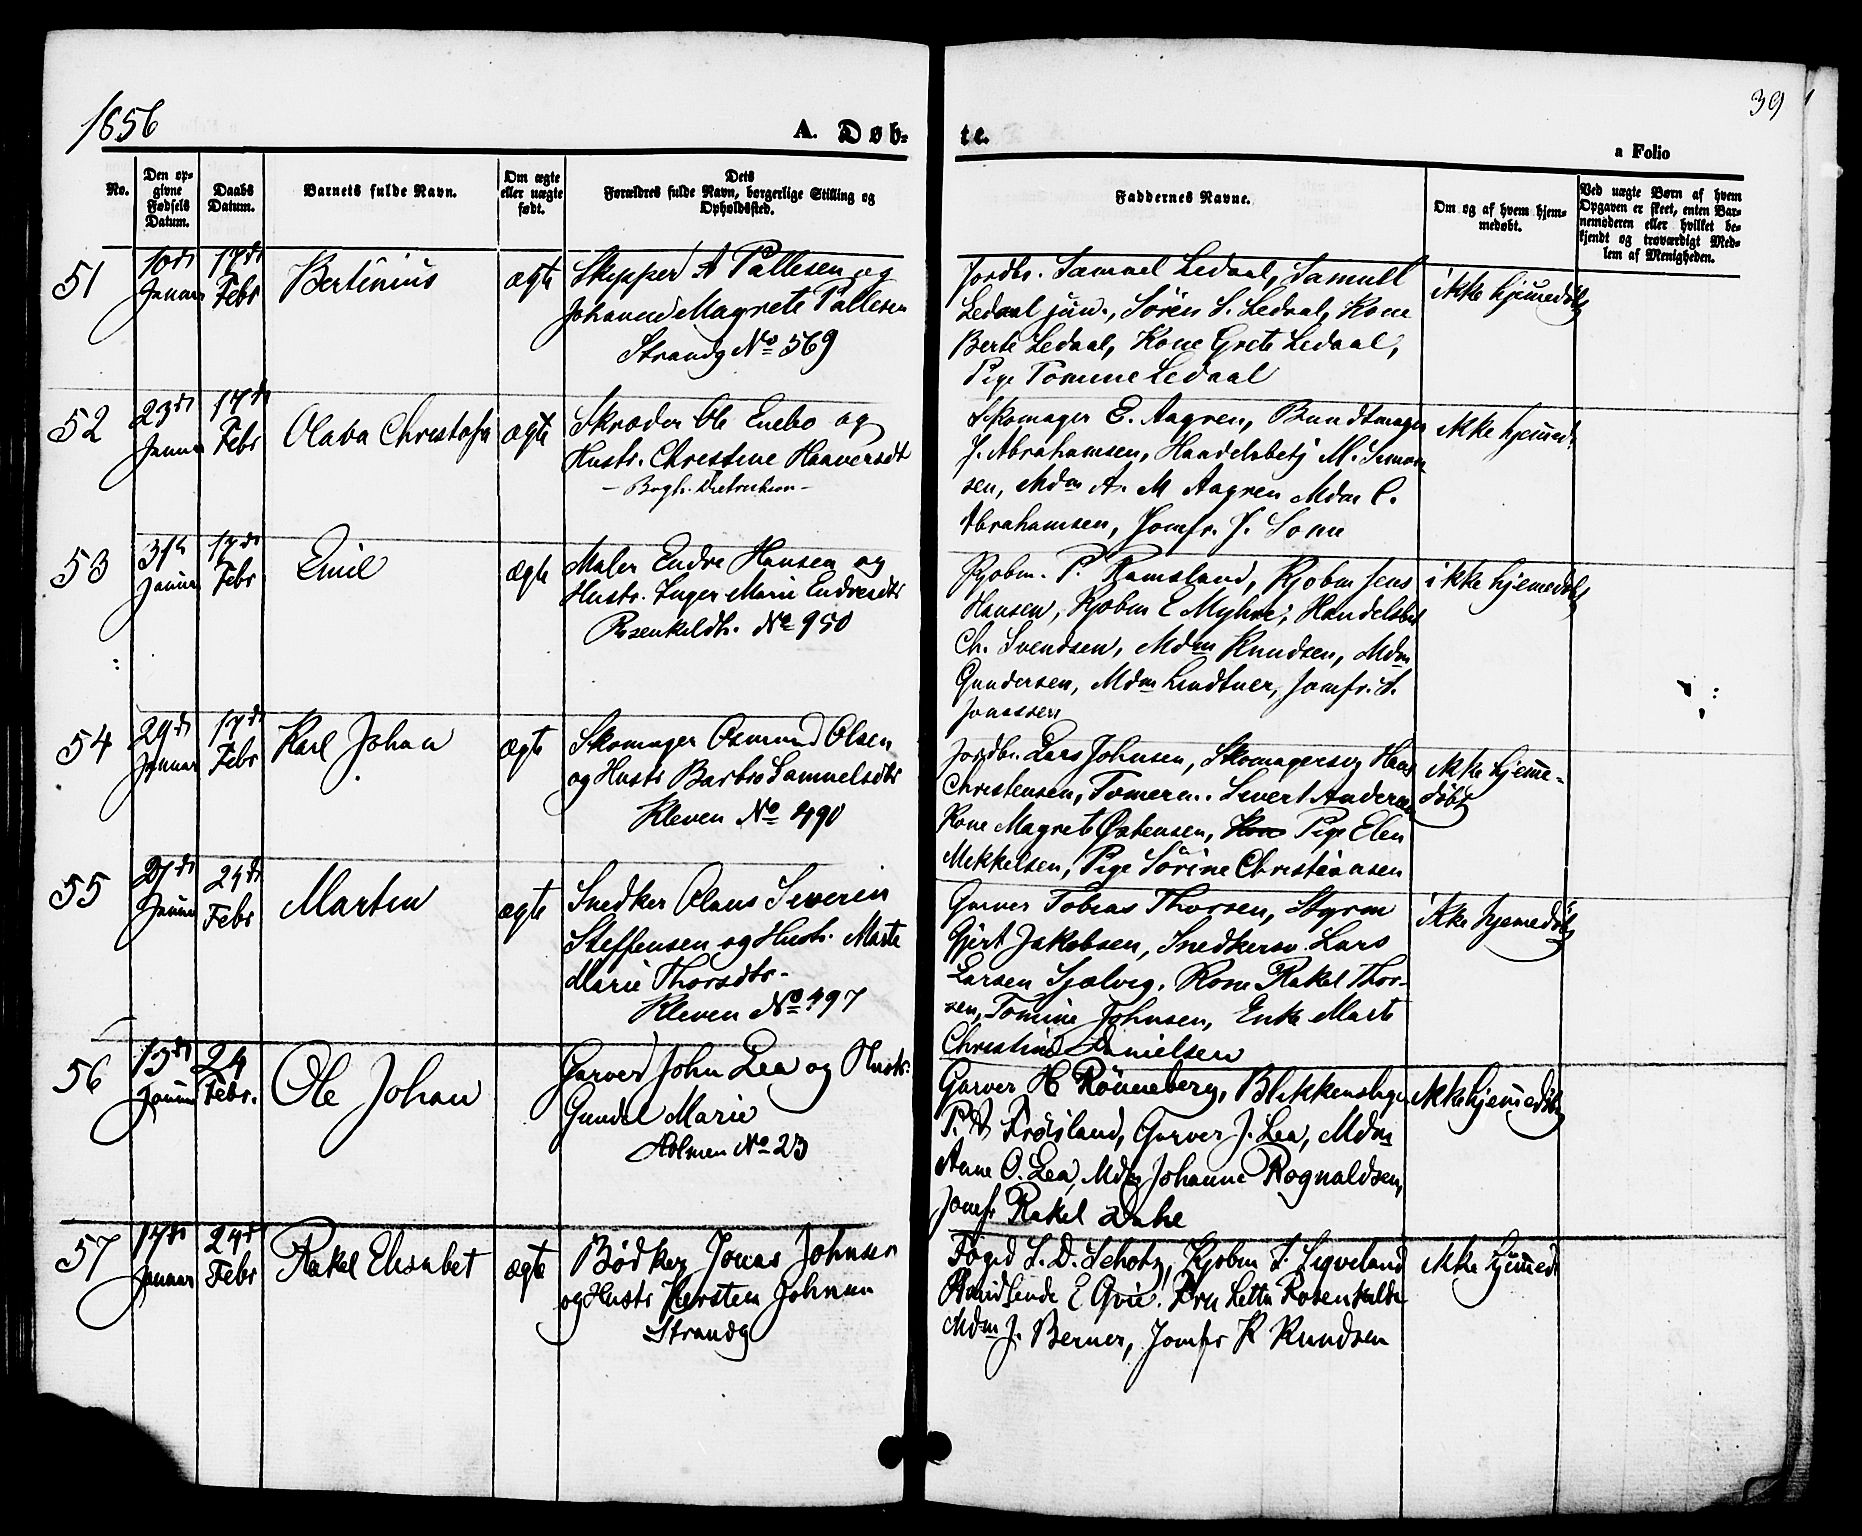 1856
39
A. Døb-
te.
a Folio
No.
Den op-
givne
Fødsels
Datum.
Daabs
Datum.
Barnets fulde Navn.
Om ægte
eller uægte
født.
Dets
Forældres fulde Navn, borgerlige Stilling og
Opholdssted.
Faddernes Navne.
Om og af hvem hjem-
medøbt.
Ved uægte Børn af hvem
Opgaven er skeet, enten Bar-
nemoderen eller hvilket be-
kjendt og troværdigt Med-
lem af Menigheden.
51
Januar
17de
Febr
Bertinius
ægte
Skipper A Pallesen og
Johanne Magrete Pallesen
Strandg No 569
Jordbr. Samuel Ledaal, Samuel
Ledaal jun., Sören S. Ledaal, Kone
Berte Ledaal, Kone Grete Ledaal,
Pige Tomine Ledaal
ikke hjemedøbt
52
23de
Januar
17de
Febr
Olava Christofa
ægte
Skræder Ole Enebo og
Hustr. Christine Haaversdt
Skomager E. Aagren, Bundtmager
J. Abrahamsen, Handelsbetj M. Simon-
sen, Mdm A. M Aagren Mdm C.
Abrahamsen, Jomfr. J. Somme
ikke hjemed.
53
31te
Januar
17de
Febr
Emil
ægte
Maler Endre Hansen og
Hustr. Inger Marie Endresdtr
Rosenkildt. No 950
Kjøbm. P. Ramsland, Kjobm Jens
Hansen, Kjobm E Myhre, Handelsbet
Ch. Svendsen, Mdm Knudsen, Mdm
Gundersen, Mdm Lindtner, Jomfr. S.
Jonassen
ikke hjemedøbt
54
29de
Januar
17de
Febr
Karl Johan
ægte
Skomager Osmund Olsen
og Hustr Barbro Samuelsdtr
Kleven No 490
Jordbr. Lars Johnsen, Skomagersv Hans
Christensen, Tømerm. Sivert Andersen
Kone Magrete Østensen, Kone Pige Elen
Mikkelsen, Pige Sörine Christiansen
ikke hjeme-
døbt
55
27de
Januar
24de
Febr
Martin
ægte
Snedker Olaus Severin
Steffensen og Hustr. Marte
Marie Thorsdtr.
Kleven No 497
Garver Tobias Thorsen, Styrm
Gjert Jakobsen, Snedkersv. Lars
Larsen Sjølvig. Kone Rakel Thor-
sen, Tomine Johnsen, Enke Marte
Christine Danielsen
ikke hjemedøbt
56
13de
Januar
24
Febr.
Ole Johan
Garver John Lea og Hustr.
Gundel Marie
Holmen No 23
Garver H Rönneberg, Blikkenslager
P. A Fröisland, Garver J. Lea, Mdm
Anne O. Lea, Mdm Johanne Rognaldsen,
Jomfr Rakel Dahl
ikke hjemedøbt
57
17de
Januar
24de
Febr
Rakel Elisabet
ægte
Bødker Jonas Johnsen
og Hustr Kersten Johnsen
Strandg
Foged S. D. Schötz, Kjobm S. Sigveland
E Qvie. Fru Letta Rosenkilde
Mdm J. Berner, Jomfr K Knudsen
ikke hjemed